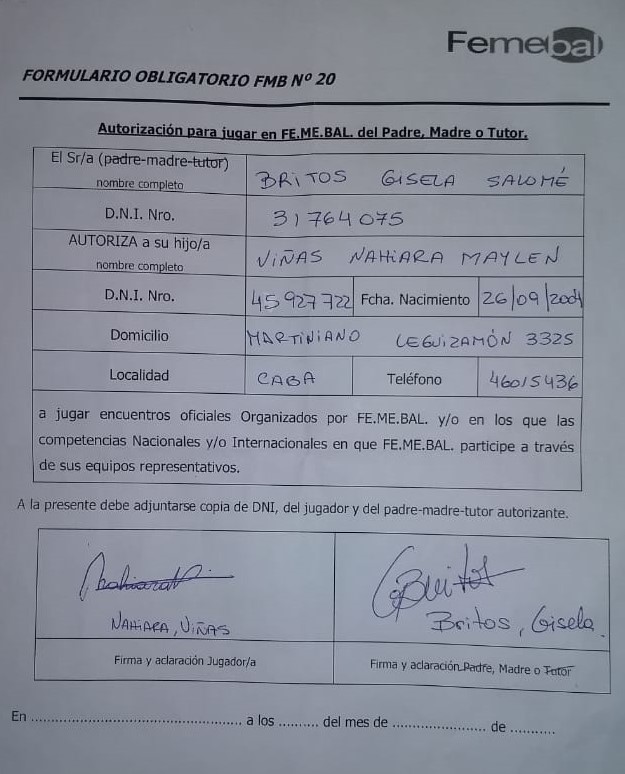 Femebal
FORMULARIO OBLIGATORIO FMB Nº 20
Autorización para jugar en FE.ME.BAL. del Padre, Madre o Tutor.
El Sr/a (padre-madre-tutor)
nombre completo
BRITOS GISELA SALOMÉ
D.N.I. Nro.
31764075
AUTORIZA a su hijo/a
nombre completo
VIÑAS NAHIARA MAYLEN
D.N.I. Nro.
45927722
Fcha. Nacimiento
26/09/2004
Domicilio
MARTINIANO LEGUIZAMÓN 3325
Localidad
CABA
Teléfono
46015436
a jugar encuentros oficiales Organizados por FE.ME.BAL. y/o en los que las
competencias Nacionales y/o Internacionales en que FE.ME.BAL. participe a través
de sus equipos representativos.
A la presente debe adjuntarse copia de DNI, del jugador y del padre-madre-tutor autorizante.
NAHIARA, VIÑAS
Britos, Gisela.
Firma y aclaración Jugador/a
Firma y aclaración Padre, Madre o Tutor
En ........................................ a los .......... del mes de ....................... de ...........